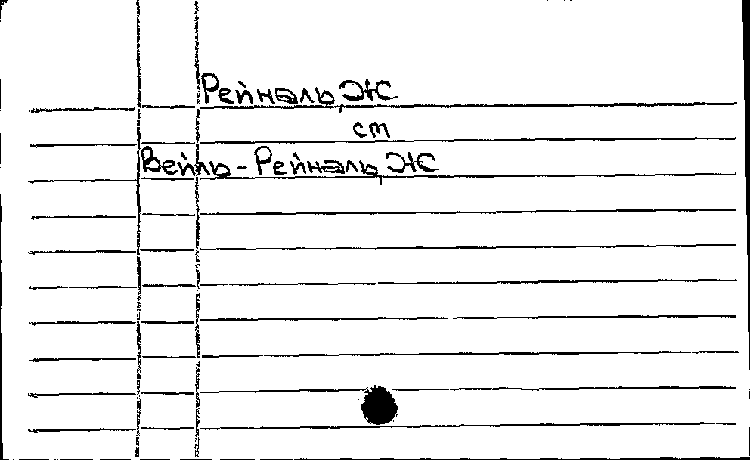 Рейналь, Ж
ст
Вейль-Рейналь, Ж